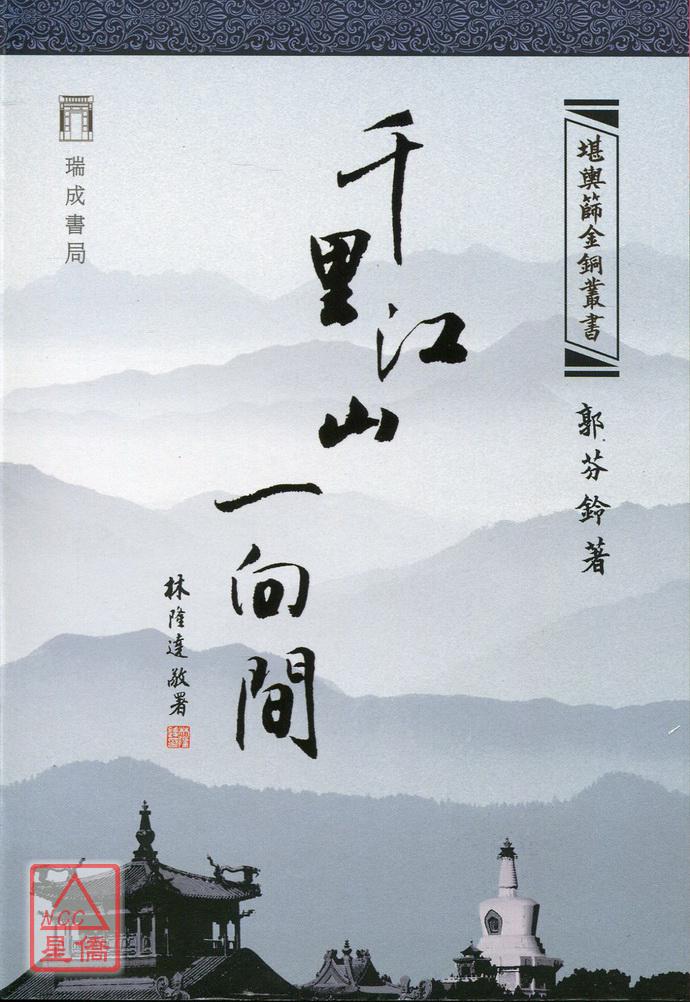 堪輿篩金銅叢書
郭芬鈴著
千里江山一向間
林隆達敬署
瑞成書局
NCC
星僑